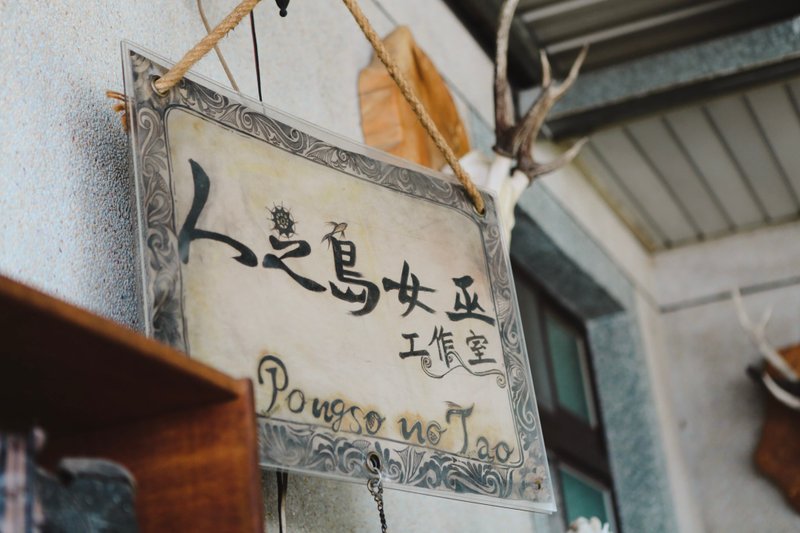 人之島女巫
工作室
Pongso no Tao